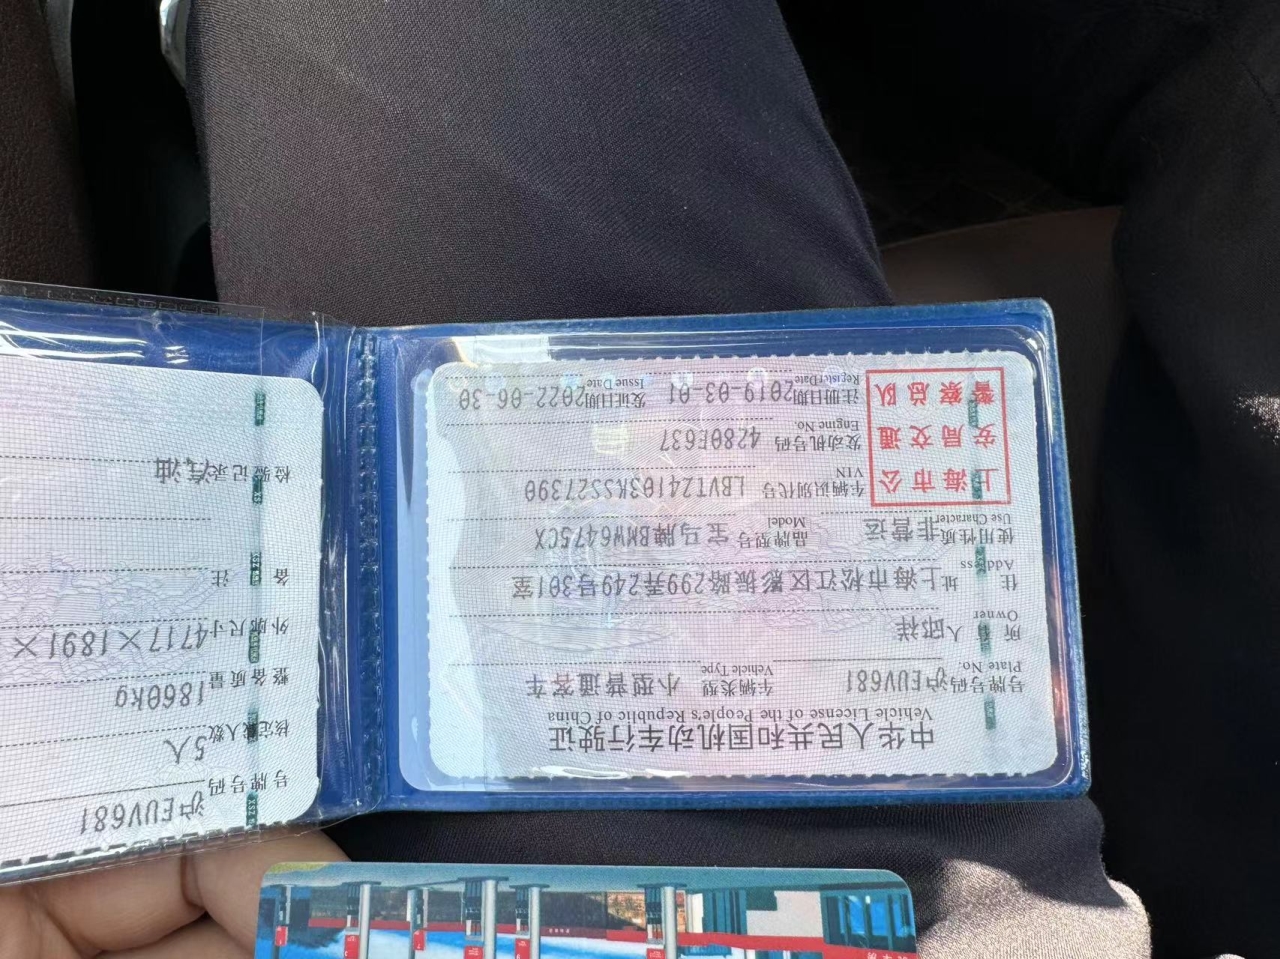 中华人民共和国机动车行驶证
Vehicle License of the People's Republic of China
号牌号码 沪EUV681 车辆类型 小型普通客车
Plate No. Vehicle Type
所有人 邱祥
Owner
住址 上海市松江区影振路299弄249号301室
Address
使用性质 非营运 品牌型号 宝马牌BMW6475CX
Use Character Model
上海市公
安局交通
警察总队
车辆识别代号 LBVTZ4103KSS27390
VIN
发动机号码 4280E637
Engine No.
注册日期 2019-03-01 发证日期 2022-06-30
Register Date Issue Date
号牌号码 沪EUV681
核定载人数 5人
整备质量 1860kg
外廓尺寸 4717×1891×
备注
检验记录 汽油